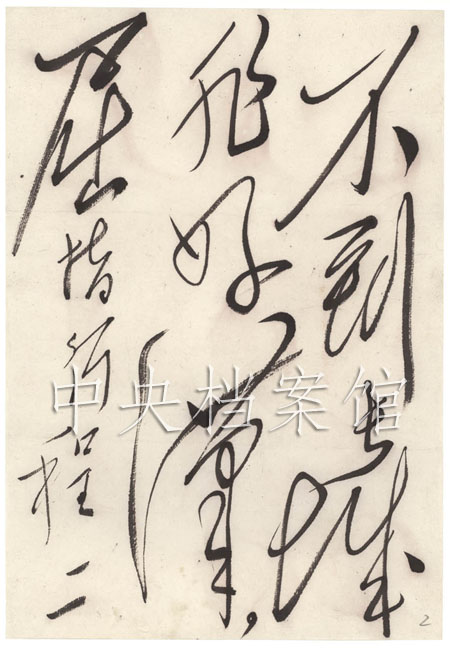 不到长城
非好汉，
屈指行程二
中央档案馆
2